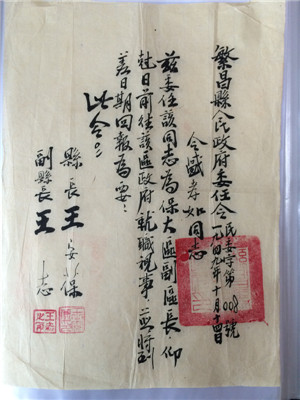 繁昌縣人民政府委任令
民委字第008號
一九四九年十月十四日
令盛孝如同志
茲委任該同志為保大區副區長仰
尅日前往該區政府就職視事並將到
差日期回報為要
此令
縣長王安葆
副縣長王志